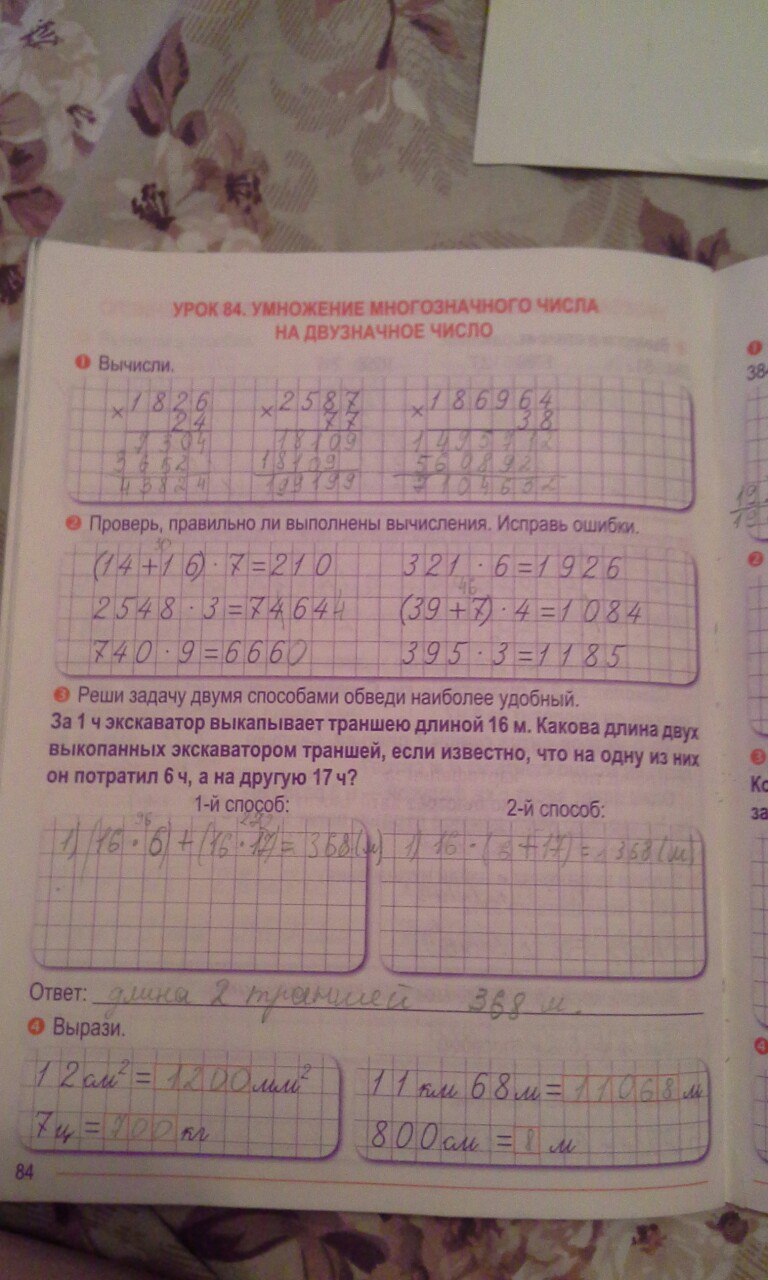 УРОК 84. УМНОЖЕНИЕ МНОГОЗНАЧНОГО ЧИСЛА
НА ДВУЗНАЧНОЕ ЧИСЛО
1 Вычисли.
×1826 ×2587 ×186964
24 77 38
7304 18109 1495712
3652 18109 560892
43824 199199 7104632
2 Проверь, правильно ли выполнены вычисления. Исправь ошибки.
30
(14+16)·7=210 321·6=1926
46
2548·3=74644 (39+7)·4=1084
740·9=6660 395·3=1185
3 Реши задачу двумя способами обведи наиболее удобный.
За 1 ч экскаватор выкапывает траншею длиной 16 м. Какова длина двух
выкопанных экскаватором траншей, если известно, что на одну из них
он потратил 6 ч, а на другую 17 ч?
1-й способ: 2-й способ:
96
1) (16·6)+(16·17)=368(м) 1) 16·(6+17)=368(м)
Ответ: длина 2 траншей 368 м.
4 Вырази.
12 см²=1200 мм² 11 км 68 м=11068 м
7 ц=700 кг 800 см=8 м
84